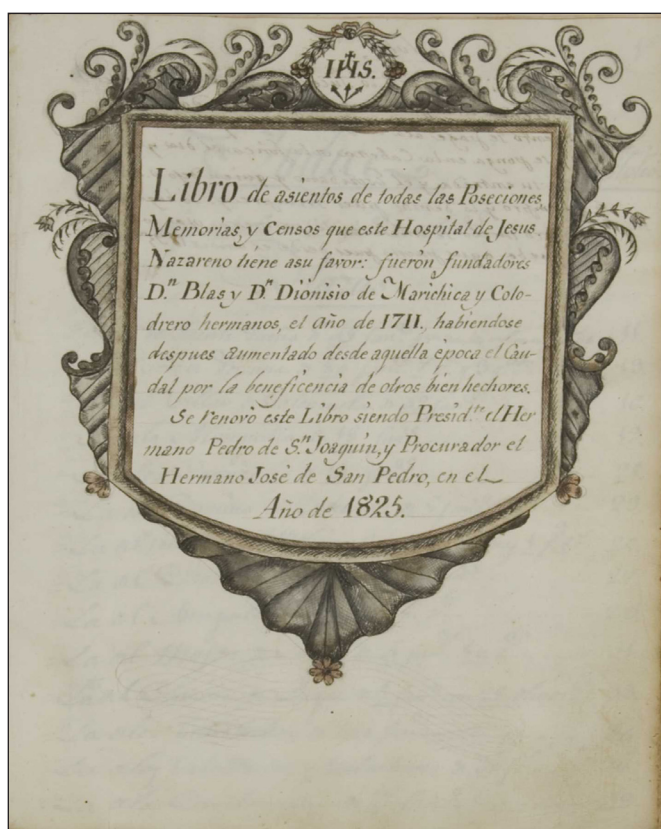 IHS.
Libro de asientos de todas las Poseciones,
Memorias, y Censos que este Hospital de Jesus
Nazareno tiene asu favor: fueron fundadores
D.n Blas y D.n Dionisio de Marichica y Colo-
drero hermanos, el año de 1711., habiendose
despues aumentado desde aquella época el Cau-
dal por la beneficencia de otros bien hechores.
Se renovó este Libro siendo Presid.te el Her
mano Pedro de S.n Joaquin, y Procurador el
Hermano José de San Pedro, en el
Año de 1825.